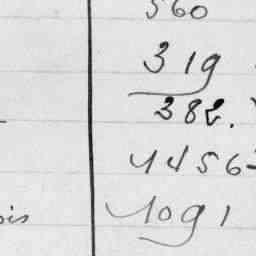 560
319
382.
1456
ois 1091